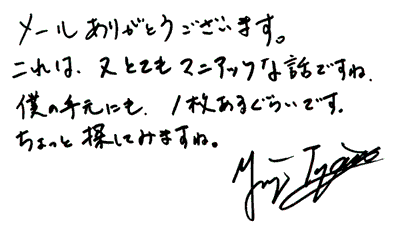 メールありがとうございます。
これは、又とてもマニアックな話ですね.
僕の手元にも、1枚あるぐらいです.
ちょっと探してみますね。
Yuji